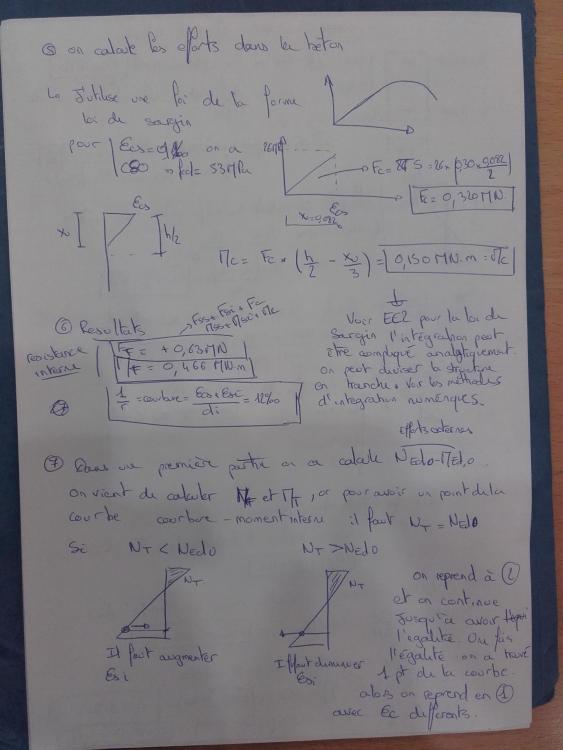 ⑤ on calcule les efforts dans le béton
↳ J'utilise une loi de la forme
loi de sargin
pour on a
C80 → fcd = 53MPa
εcs
x = 0,082
Fc = 0,320MN
εcs
xu
h/2
Πc = Fc * (h/2 - xu/3) = 0,150MN.m = Πc
⑥ Resultats
Fss + Fsi + Fc
resistance interne
FT = +0,63MN
= 0,466 MN.m
1/r = courbure = = 12‰
Voir EC2 pour la loi de
sargin l'intégration peut
être compliqué analytiquement.
on peut diviser la structure
en tranche. Voir les méthodes
d'intégration numériques.
Efforts externes
⑦ Dans une première partie on a calculé NEd0-ΠEd,0
on vient de calculer NT et ΠT, or pour avoir un point de la
courbe courbure - moment interne il faut NT = NEd0
Si NT < NEd0 NT > NEd0
NT
NT
Il faut augmenter
εsi
Il faut diminuer
εsi
on reprend à ②
et on continue
jusqu'à avoir
l'égalité. Une fois
l'égalité on a trouvé
1 pt de la courbe.
alors on reprend en ①
avec εc differents.